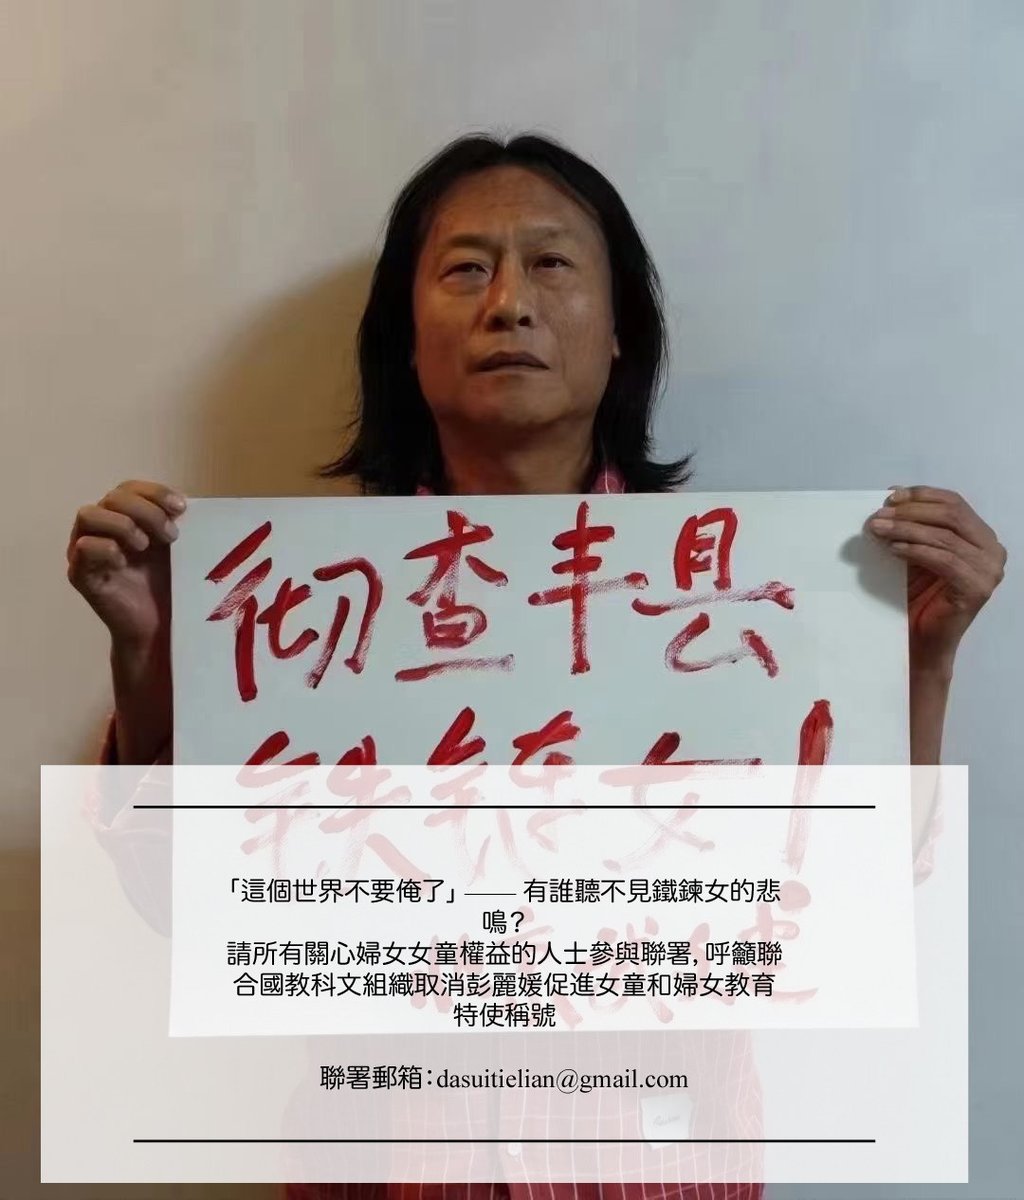 彻查丰县
铁链女！
「這個世界不要俺了」—— 有誰聽不見鐵鍊女的悲
鳴？
請所有關心婦女女童權益的人士參與聯署，呼籲聯
合國教科文組織取消彭麗媛促進女童和婦女教育
特使稱號
聯署郵箱：dasuitielian@gmail.com